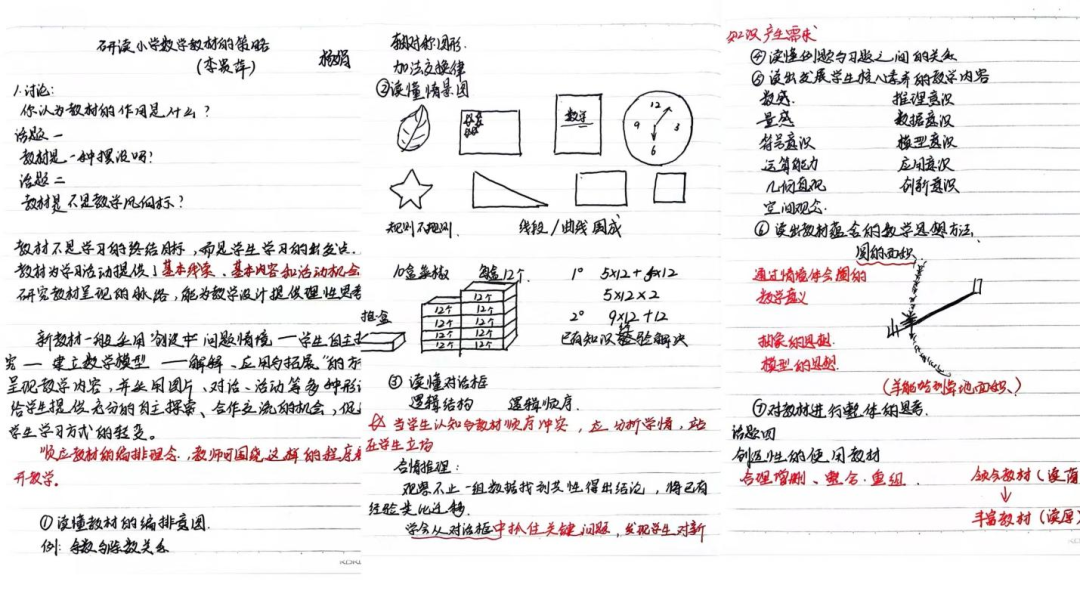 研读小学数学教材的策略
(李景萍)
1.讨论:
你认为教材的作用是什么?
话题一
教材是一种摆设吗?
话题二
教材是不是教学风向标?
教材不是学习的终结目标,而是学生学习的出发点.
教材为学习活动提供了基本线索、基本内容和活动机会
研究教材呈现的脉络,能为教学设计提供理性思考
新教材一般采用"创设 问题情境—学生自主
究—建立数学模型—解释、应用与拓展"的方
呈现教学内容,并采用图片、对话、活动等多种形
给学生提供充分的自主探索、合作交流的机会,促
学生学习方式的转变。
顺应教材的编排理念,教师可围绕这样的程序
开教学。
①读懂教材的编排意图.
例:余数与除数关系
轴对称图形.
加法交换律
②读懂情景图
数学
12
9 3
6
规则不规则. 线段/曲线围成
10盒 每盒12个.
12个 12个
12个 12个
12个 12个
12个 12个
12个
1° 5×12+5×12
5×12×2
2° 9×12+12
已有知识经验解决
③读懂对话框
逻辑结构 逻辑顺序.
当学生认知与教材顺序冲突,应分析学情,站
在学生立场
合情推理:
观察不止一组数据找到共性得出结论,将已有
经验类比迁移.
学会从对话框中抓住关键问题,发现学生对新
知识产生需求
④读懂例题与习题之间的关系
⑤读出发展学生核心素养的教学内容
数感. 推理意识
量感 数据意识
符号意识 模型意识
运算能力 应用意识
几何直观 创新意识
空间观念.
⑥读出教材蕴含的数学思想方法.
圆的面积
通过情境体会圆的
数学意义
抽象的思想
模型的思想.
(羊能吃到草地面积.)
⑦对教材进行整体的思考.
话题四
创造性的使用教材
合理增删、整合、重组. 领会教材(读
↓
丰富教材(读厚)